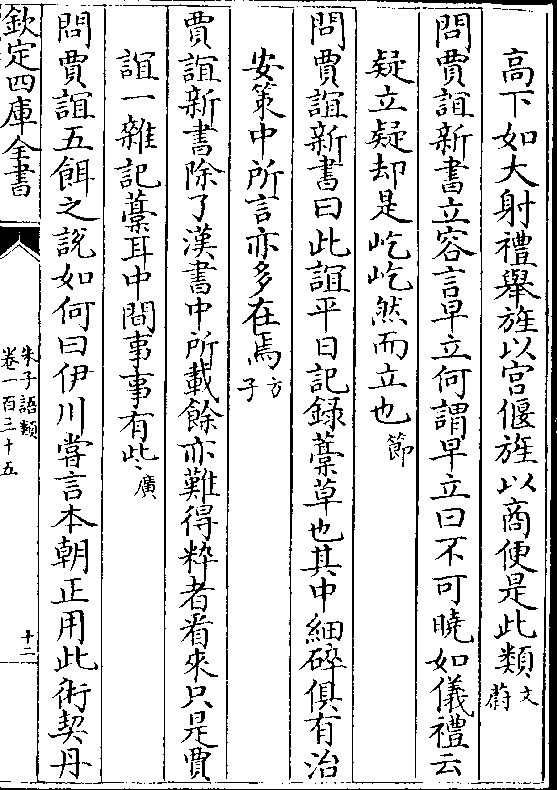 高下如大射禮舉旌以宫偃旌以商便是此類文蔚
問賈誼新書立容言早立何謂早立曰不可曉如儀禮云
疑立疑却是屹屹然而立也節
問賈誼新書曰此誼平日記録藁草也其中細碎俱有治
安策中所言亦多在焉方子
賈誼新書除了漢書中所載餘亦難得粹者看來只是賈
誼一雜記藁耳中間事事有此廣
問賈誼五餌之說如何曰伊川嘗言本朝正用此術契丹
欽定四庫全書
朱子語類
卷一百三十五
十二